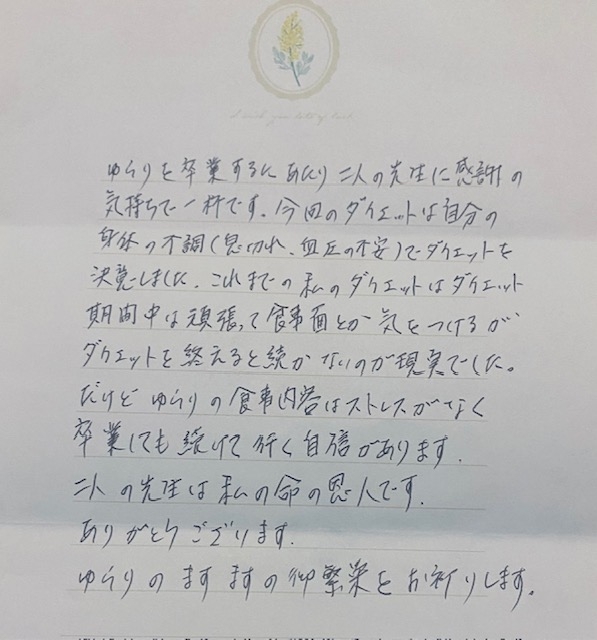 I wish you lots of luck
ゆらりを卒業するにあたり二人の先生に感謝の
気持ちで一杯です。今回のダイエットは自分の
身体の不調(息切れ、血圧の不安)でダイエットを
決意しました。これまでの私のダイエットはダイエット
期間中は頑張って食事面とか気をつけるが
ダイエットを終えると続かないのが現実でした。
だけどゆらりの食事内容はストレスがなく
卒業しても続けて行く自信があります。
二人の先生は私の命の恩人です。
ありがとうございます。
ゆらりのますますの御繁栄をお祈りします。